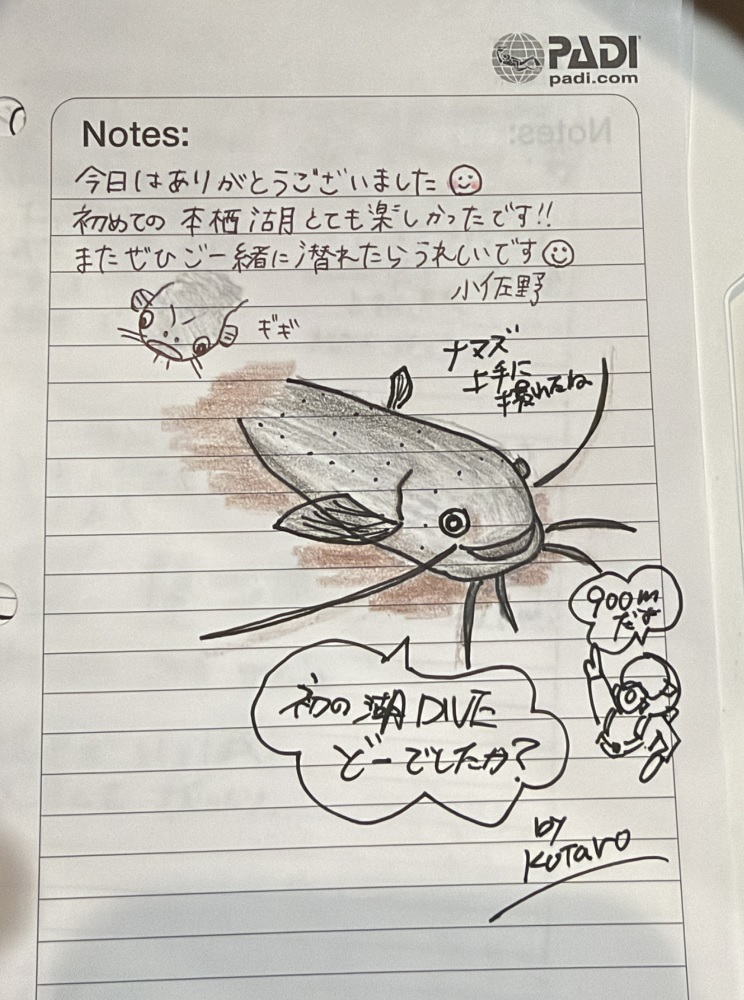 PADI
padi.com
Notes:
今日はありがとうございました
初めての 本栖湖 とても楽しかったです!!
またぜひご一緒に潜れたらうれしいです
小佐野
ギギ
ナマズ
上手に
撮れたね
900m
だよ
初の湖DIVE
どーでしたか?
by
KOTARO